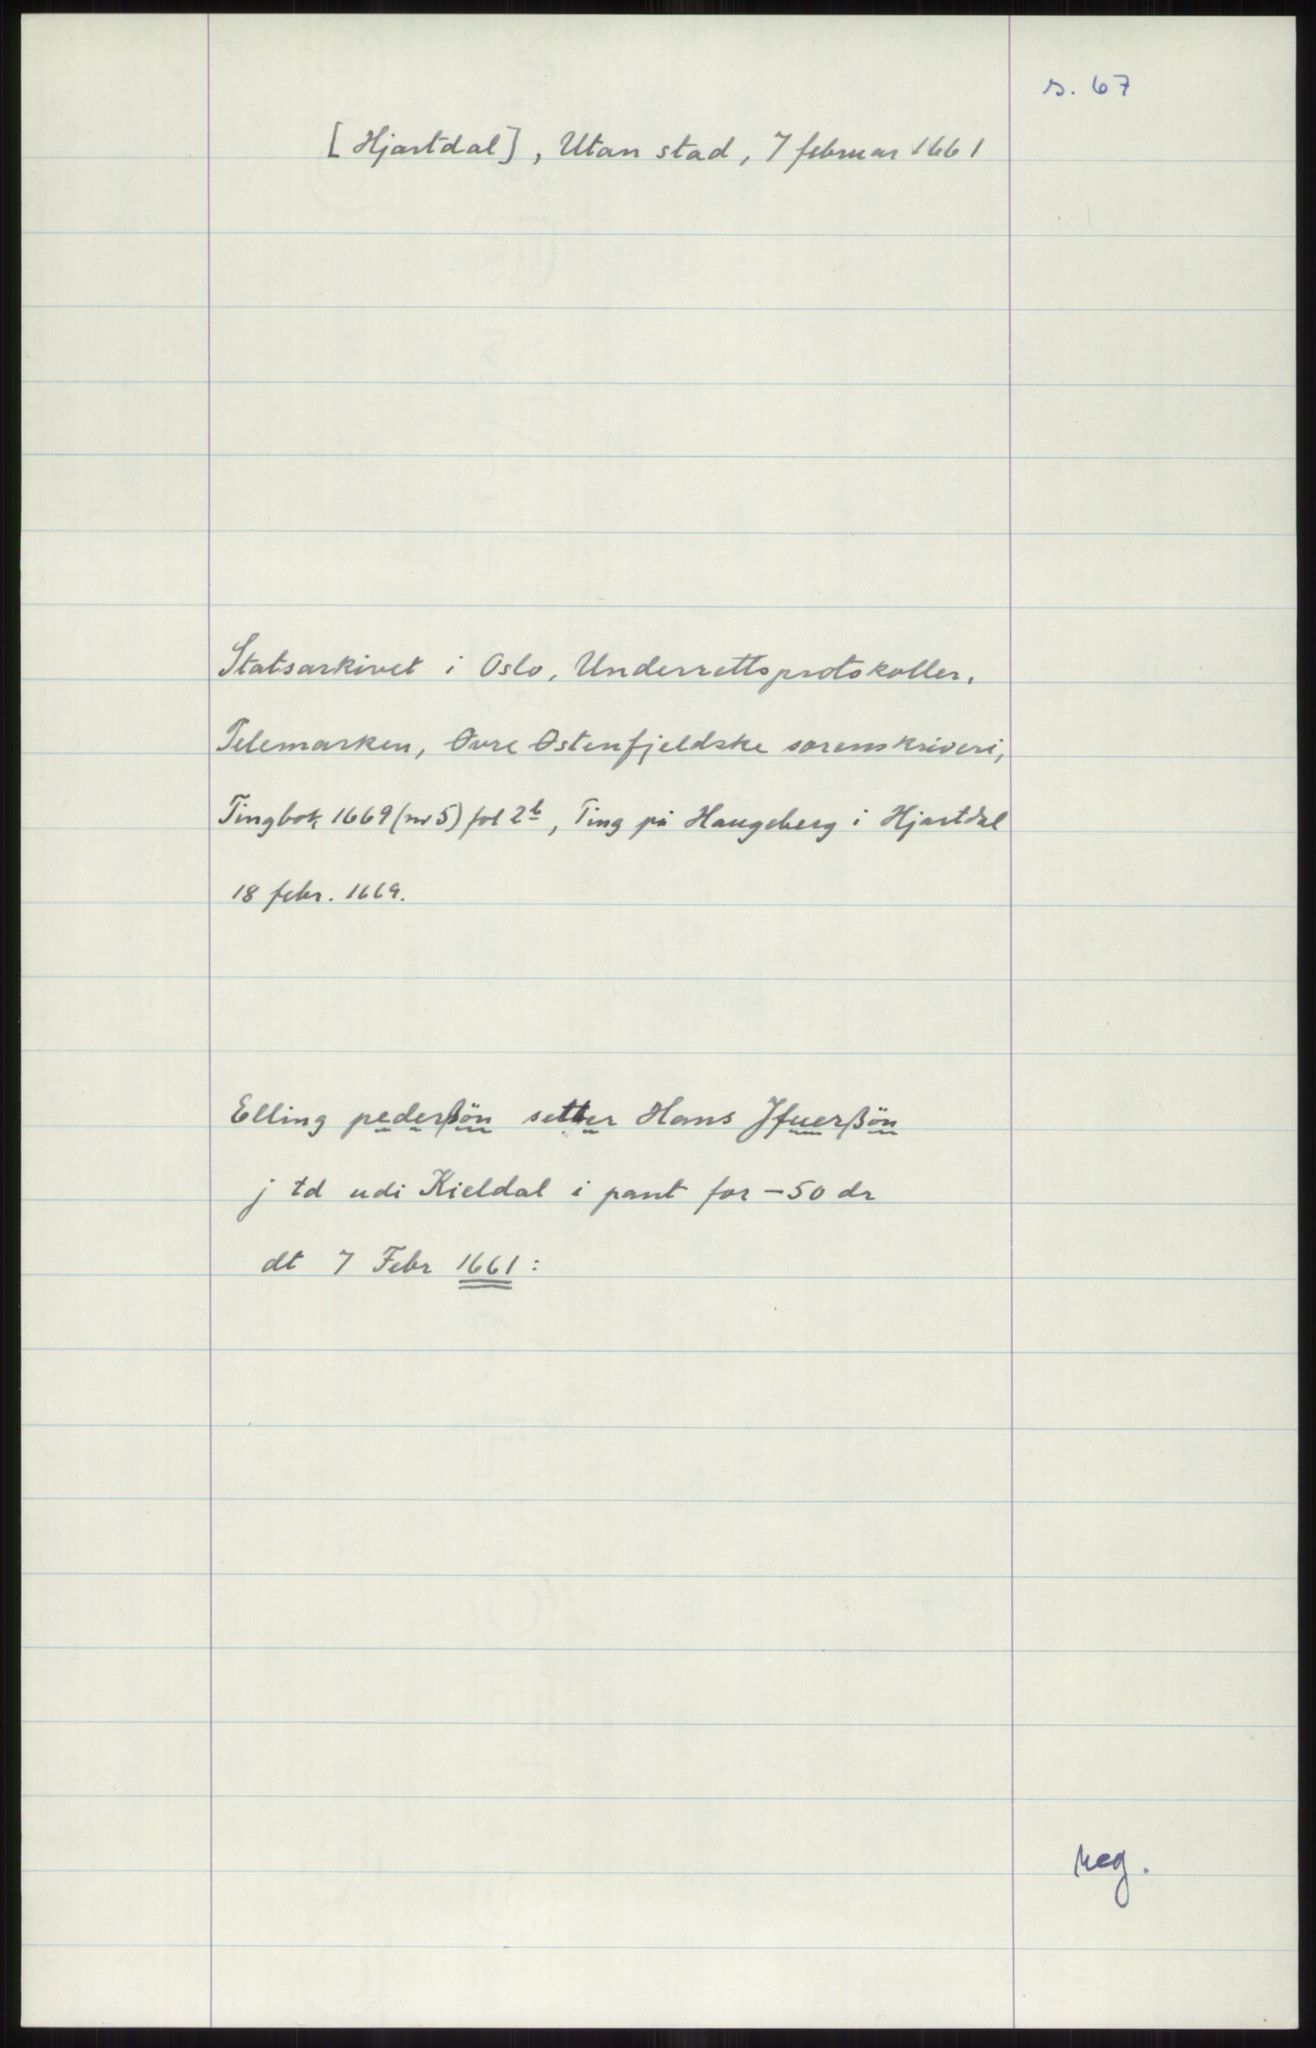 s. 67
[Hjartdal], Utan stad, 7 februar 1661
Statsarkivet i Oslo, Underrettsprotokoller,
Telemarken, Øvre Østenfjeldske sorenskriveri,
Tingbok 1669 (nr 5) fol 2b, Ting på Haugeberg i Hjartdal
18 febr. 1669.
Elling pederßön setter Hans Jfuerßön
j td udi Kieldal i pant for – 50 dr
dt 7 Febr 1661:
reg.